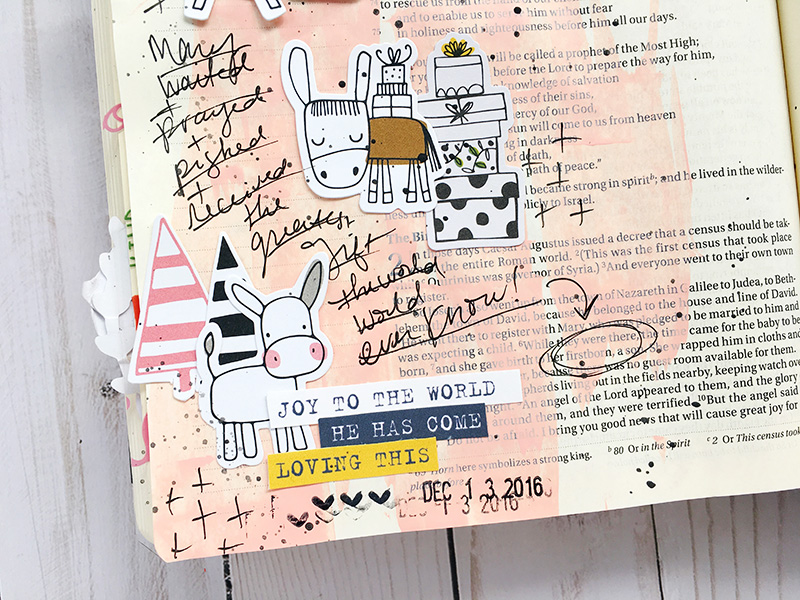 to rescue us from
and to enable us to serve him without fear
in holiness and righteousness before him all our days.
will be called a prophet of the Most High;
before the Lord to prepare the way for him,
knowledge of salvation
ness of their sins,
ercy of our God,
sun will come to us from heaven
g in dark
of death,
path of peace.”
became strong in spiritᵇ; and he lived in the wilder-
licly to Israel.
Mary
waited
+
prayed
+
pushed
+
received
the
greatest
gift
the world
world
ever know!
In those days Caesar Augustus issued a decree that a census should be tak-
the entire Roman world. ²(This was the first census that took place
Quirinius was governor of Syria.) ³And everyone went to their own town
register.
went from the town of Nazareth in Galilee to Judea, to Beth-
of David, because he belonged to the house and line of David.
He went there to register with Mary, who was pledged to be married to him and
was expecting a child. ⁶While they were there, the time came for the baby to be
born, ⁷and she gave birth to her firstborn, a son. She wrapped him in cloths and
was no guest room available for them.
shepherds living out in the fields nearby, keeping watch over
night. ⁹An angel of the Lord appeared to them, and the glory
around them, and they were terrified. ¹⁰But the angel said
afraid. I bring you good news that will cause great joy for
JOY TO THE WORLD
HE HAS COME
LOVING THIS
Horn here symbolizes a strong king.
ᵇ 80 Or in the Spirit
ᶜ 2 Or This census took
DEC 13 2016
DEC 13 2016